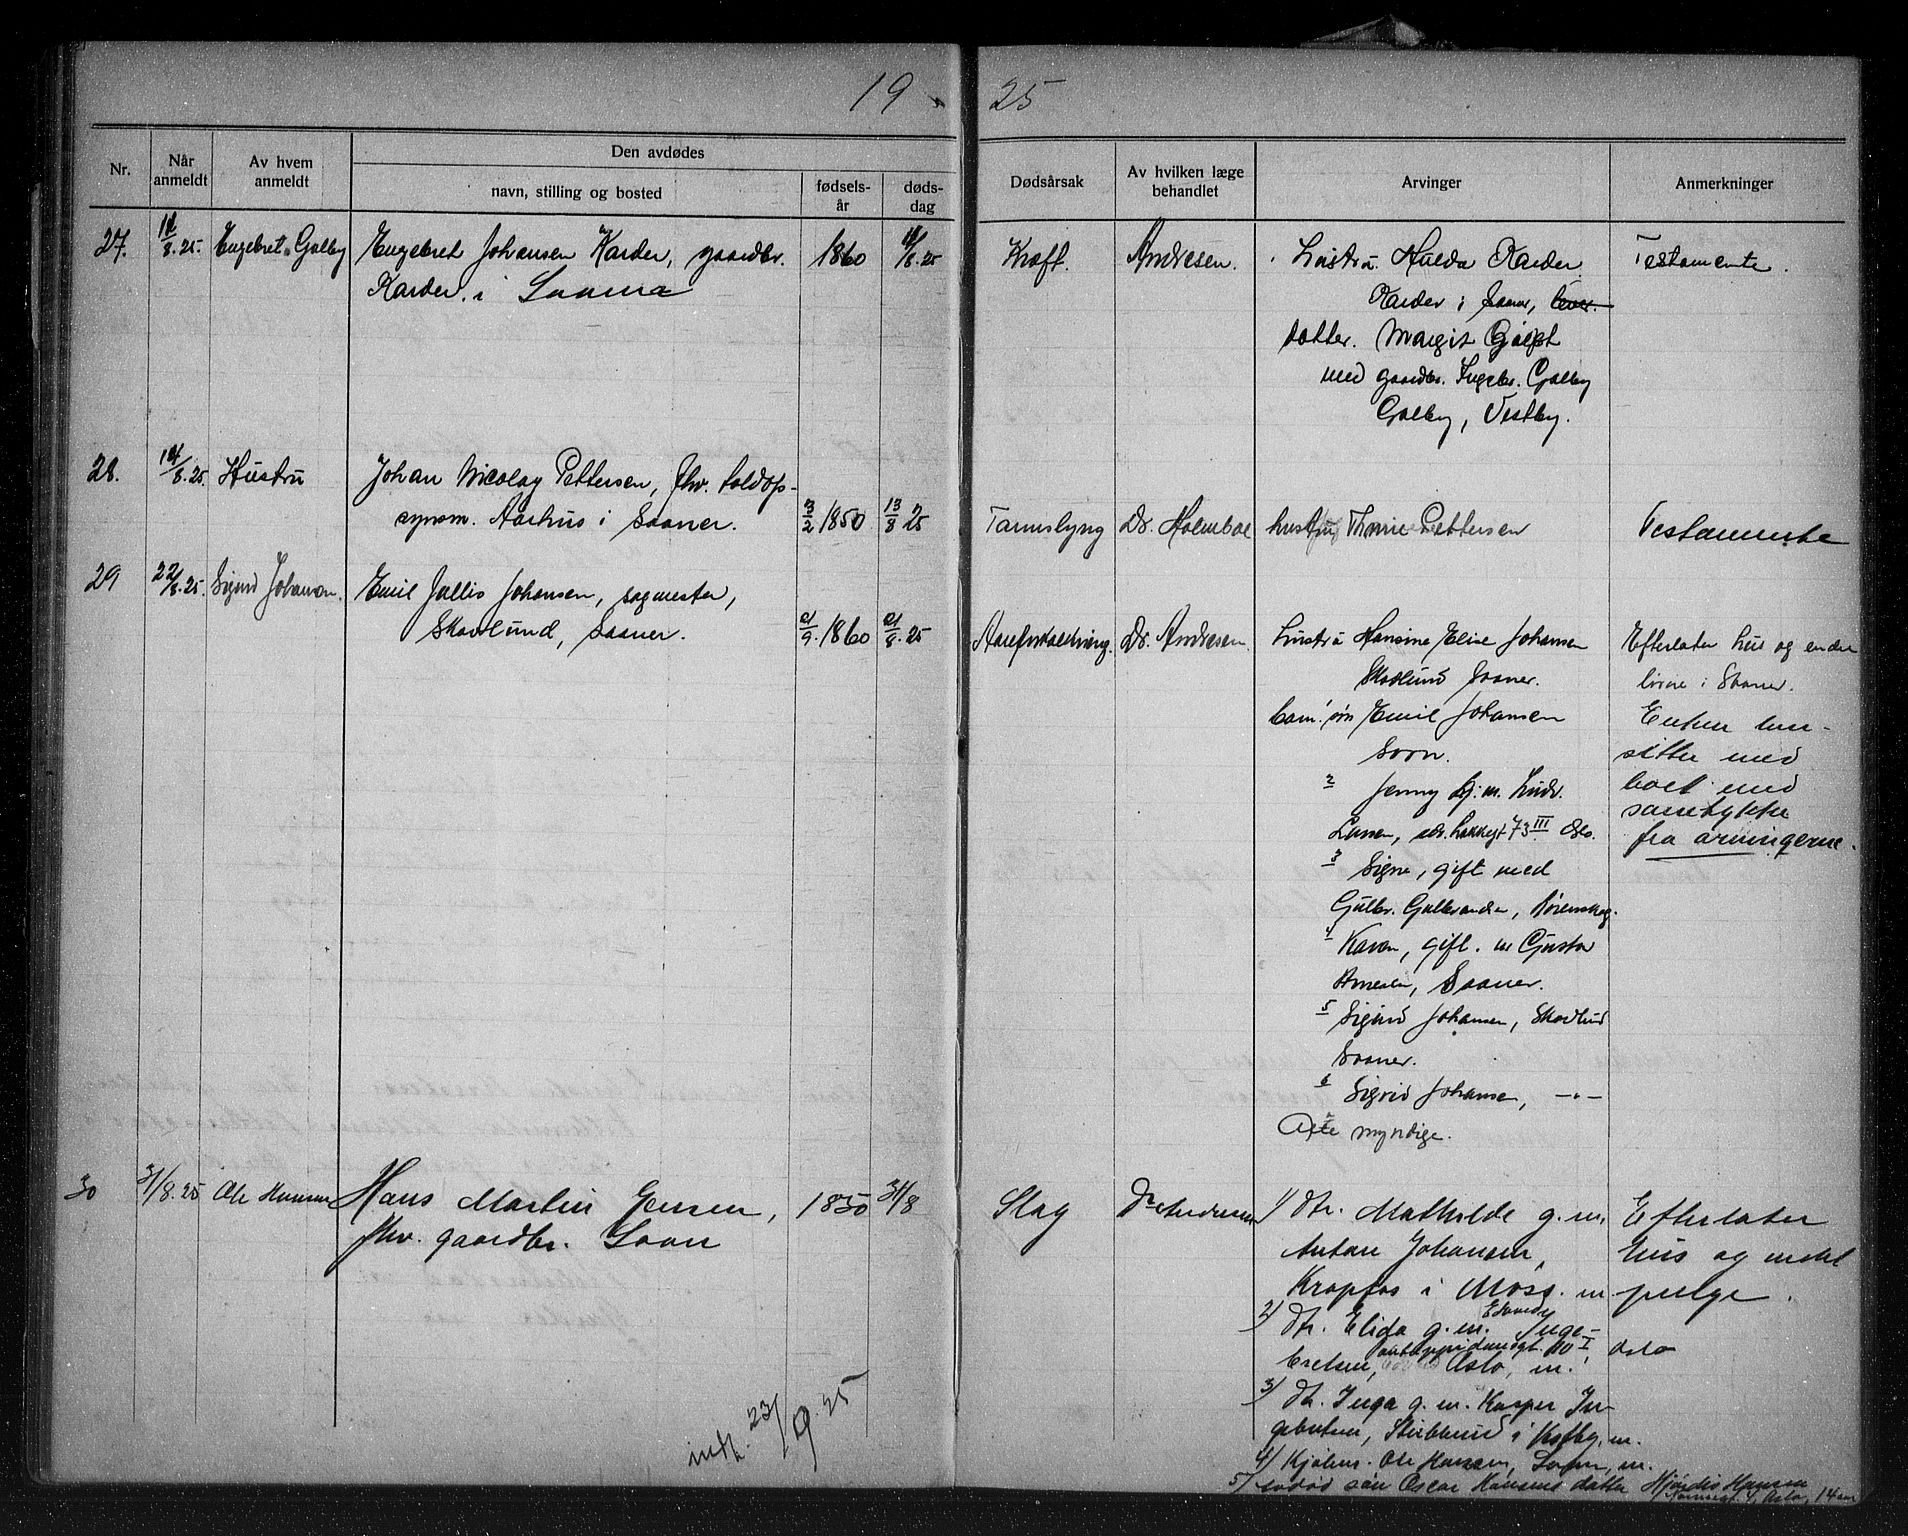 19
25
Nr.
Når anmeldt
Av hvem anmeldt
Den avdødes
navn, stilling og bosted
fødsels-år
døds-dag
Dødsårsak
Av hvilken læge behandlet
Arvinger
Anmerkninger
27. 11/8.25. Engebret Galby
Engebret Johansen Karder, gaardbr.
Karder i Saana
1860 11/8.25
Kræft. Andresen.
hustru. Hulda Karder
Karder i Saaner,
datter. Margit
med gaardbr. Ingebr. Galby
Galby, Vestby.
Testamente.
28. 14/8.25. Hustru
Johan Nicolay Pettersen, fhv. toldop-
synsm. Aarhus i Saaner.
3/2 1850 13/8 25
Dr. Holmboe
hustru Pettersen
Testamente
29 22/8.25. Sigurd Johansen.
Emil Julius Johansen, sagmester,
Skovlund, Saaner.
21/9. 1860 21/8.25
Aareforkalkning. Dr. Andresen.
hustru Hansine Elise Johansen
Skovlund Saaner.
barn: søn Emil Johansen
Soon.
2 Jenny g.m. Ludv.
Larsen, adr. 73 III Oslo.
3 Signe, gift med
Gulbr. Gulbrandsen, Lørenskog.
4 Karen, gift. m Gustav
Arnesen, Saaner.
5 Sigurd Johansen, Skovlund
Saaner.
6 Sigrid Johansen, -"-
Alle myndige.
Efterlater hus og endel
løsøre i Saaner.
Enken hen-
sitter med
boet med
samtykke
fra arvingerne.
30 31/8.25 Ole Hansen
Hans Martin Jensen,
fhv. gaardbr. Soon
1850 31/8
Slag Dr Andresen
1) Dtr. Mathilde g.m.
Anton Johansen,
Krapfos i Moss. m.
2) Dtr. Elida g.m. Edvard Inge-
bretsen, 110 I Oslo, m.
Oslo
3) Dtr. Inga g.m. Kasper In-
gebretsen, Stubblund i Vestby, m.
4) Ole Hansen, Soon, m.
5) søn Oscar Hansens datter Hjørdis Hansen
Oslo, 14 aar
Efterlater
hus og endel
penge.
indb. 23/9.25